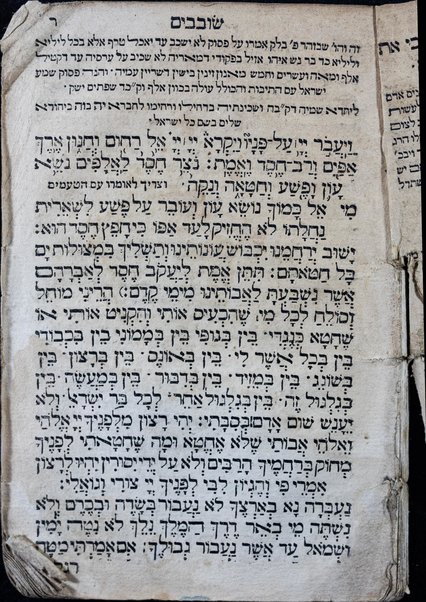 שובבים
ר
זה והו' שבזוהר פ' בלק אמרו על פסוק לא ישכב עד יאכל טרף אלא בכל ליליא
וליליא כד בר נש איהו אזיל בפקודי דמאריה לא שכיב על ערסיה עד דקטיל
אלף ומאה ועשרים וחמש מאנון זינין בישין דשריין עמיה · והנה פסוק שמע
ישראל עם התיבות והכולל עולה כמנין אלף וק"כ שפתים ישק ·
שמיה דק"בה ושכינתיה בדחילו ורחימו לחברא
שלים בשם כל ישראל ·
וַיַּעֲבֹר יְיָ עַל־פָּנָיו וַיִּקְרָא יְיָ יְיָ אֵל רַחוּם וְחַנּוּן אֶרֶךְ
אַפַּיִם וְרַב־חֶסֶד וֶאֱמֶת: נֹצֵר חֶסֶד לָאֲלָפִים נֹשֵׂא
עָוֹן וָפֶשַׁע וְחַטָּאָה וְנַקֵּה · וצריך לאומרו עם הטעמים
מִי אֵל כָּמוֹךָ נוֹשֵׂא עָוֹן וְעוֹבֵר עַל פֶּשַׁע לִשְׁאֵרִית
נַחֲלָתוֹ לֹא הֶחֱזִיק לָעַד אַפּוֹ כִּי חָפֵץ חֶסֶד הוּא:
יָשׁוּב יְרַחֲמֵנוּ יִכְבּוֹשׁ עֲוֹנוֹתֵינוּ וְתַשְׁלִיךְ בִּמְצוּלוֹת יָם
כָּל חַטֹּאתָם: תִּתֵּן אֱמֶת לְיַעֲקֹב חֶסֶד לְאַבְרָהָם
אֲשֶׁר נִשְׁבַּעְתָּ לַאֲבוֹתֵינוּ מִימֵי קֶדֶם:) הֲרֵינִי מוֹחֵל
וְסוֹלֵחַ לְכָל מִי שֶׁהִכְעִיס אוֹתִי וְהִקְנִיט אוֹתִי אוֹ
שֶׁחָטָא כְּנֶגְדִּי · בֵּין בְּגוּפִי בֵּין בְּמָמוֹנִי בֵּין בִּכְבוֹדִי
בֵּין בְּכָל אֲשֶׁר לִי · בֵּין בְּאוֹנֶס · בֵּין בְּרָצוֹן · בֵּין
בְּשׁוֹגֵג · בֵּין בְּמֵזִיד · בֵּין בְּדִבּוּר · בֵּין בְּמַעֲשֶׂה · בֵּין
בְּגִלְגּוּל זֶה · בֵּין בְּגִלְגּוּל אַחֵר · לְכָל בַּר יִשְׂרָאֵ' וְלֹא
יֵעָנֵשׁ שׁוּם אָדָם בְּסִבָּתִי: יְהִי רָצוֹן מִלְּפָנֶיךָ יְיָ אֱלֹהַי
וֵאלֹהֵי אֲבוֹתַי שֶׁלֹּא אֶחֱטָא וּמַה שֶּׁחָטָאתִי לְפָנֶיךָ
מְחוֹק בְּרַחֲמֶיךָ הָרַבִּים וְלֹא עַל יְדֵי יִסּוּרִין יִהְיוּ לְרָצוֹן
אִמְרֵי פִי וְהֶגְיוֹן לִבִּי לְפָנֶיךָ יְיָ צוּרִי וְגוֹאֲלִי:
נַעְבְּרָה נָּא בְאַרְצֶךָ לֹא נַעֲבוֹר בְּשָׂדֶה וּבְכֶרֶם וְלֹא
נִשְׁתֶּה מֵי בְאֵר דֶּרֶךְ הַמֶּלֶךְ נֵלֵךְ לֹא נִטֶּה יָמִין
וּשְׂמֹאל עַד אֲשֶׁר נַעֲבוֹר גְּבוּלֶךָ: אִם אָמַרְתִּי מָטָה
רגלי